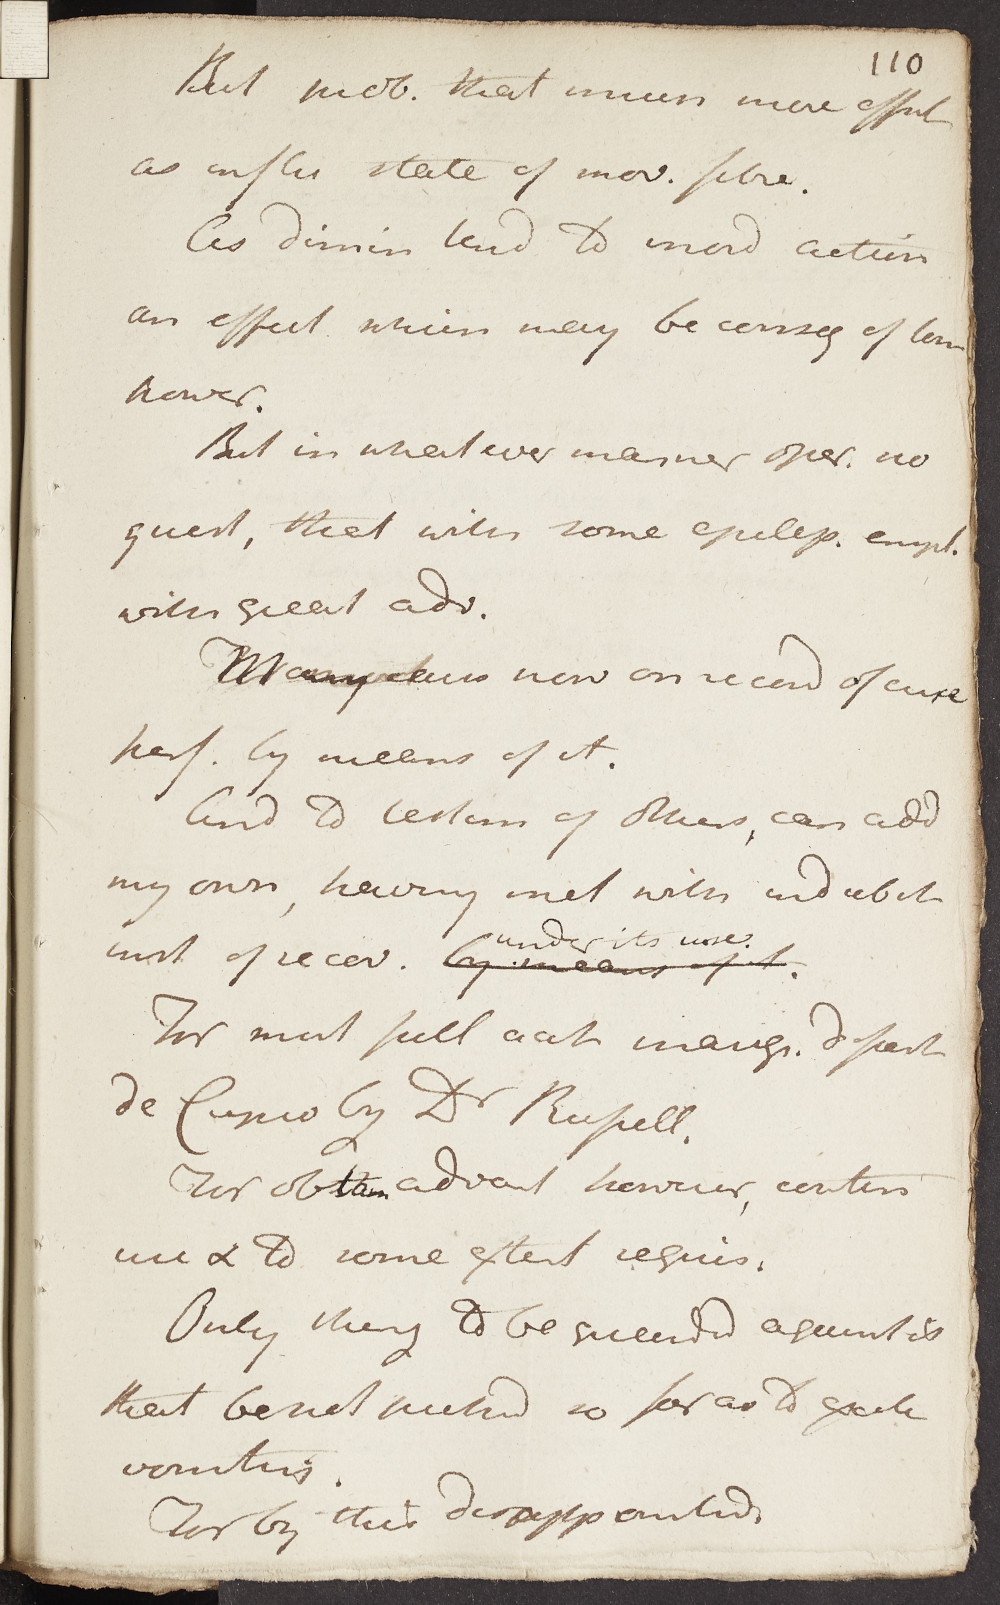 110
But prob. that much more effect
as influ state of mov. fibre.
As dimin tend to inord action
an effect which may be conseq of ton
power.
But in whatever manner oper. no
quest, that with some epilep. empl.
with great adv.
Many now on record of cure
perf. by means of it.
And to testim of others, can add
my own, having met with indubit
inst of recov. by means of it.
under its use.
For most full act mang. dissert
de Cupro by Dr Russell.
For obtain advant however, contin
use & to some extent requis.
Only thing to be guarded against is
that be not pushd so far as to excite
vomiting.
For by this disappointed.